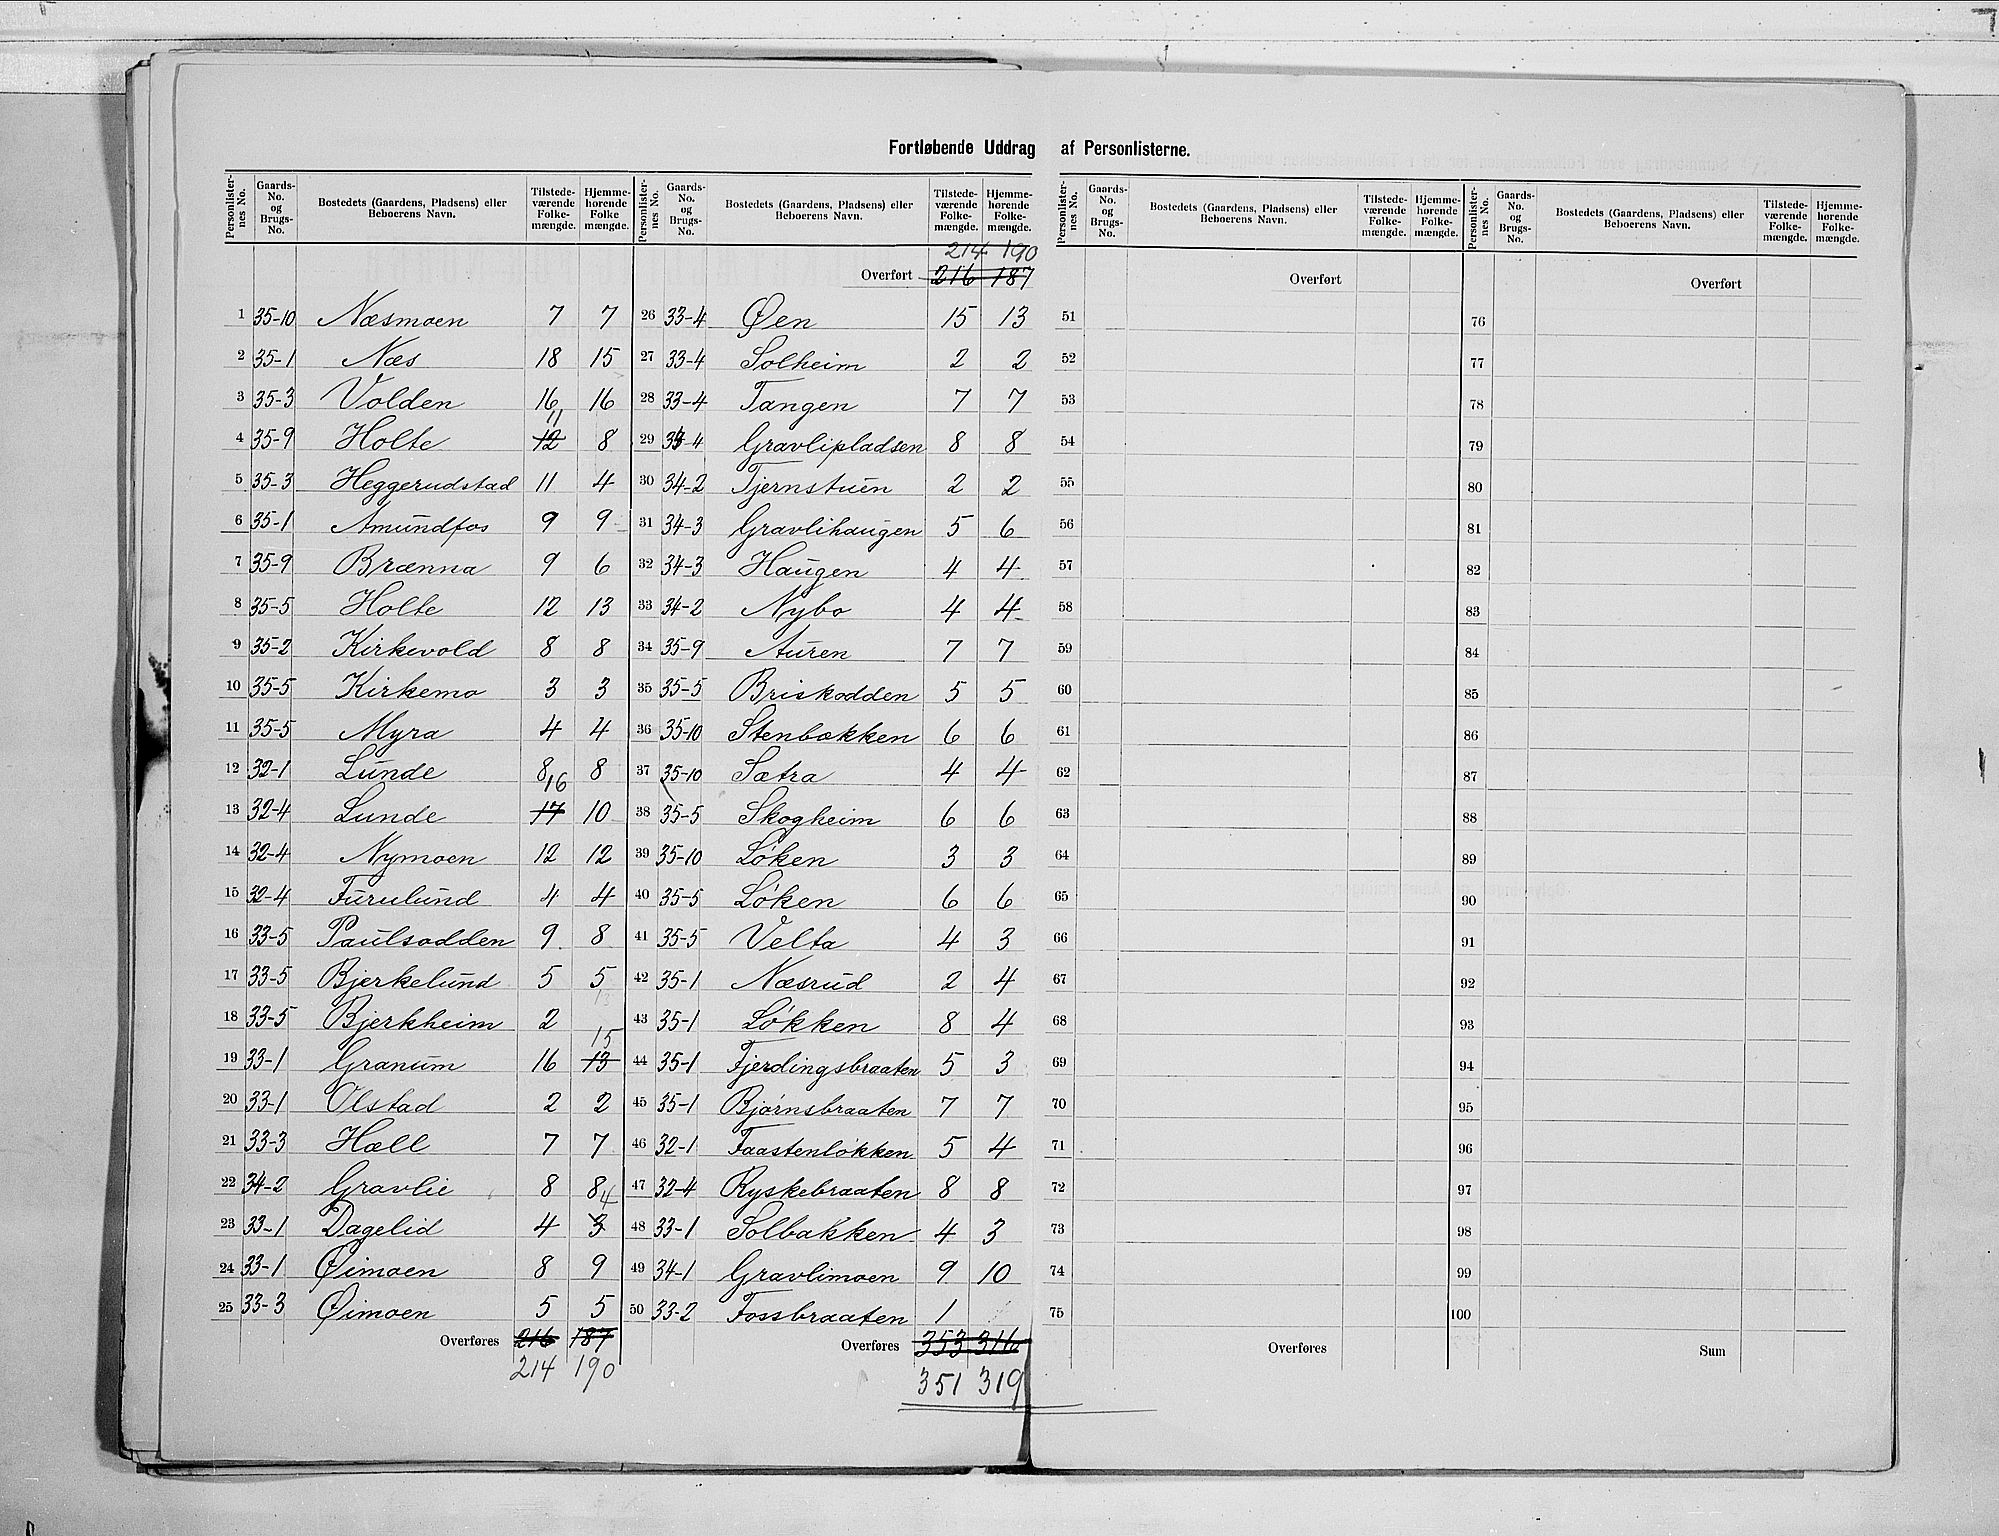 Fortløbende Uddrag af Personlisterne.
Personlister-nes No. Gaards-No. og Brugs-No. Bostedets (Gaardens, Pladsens) eller Beboerens Navn. Tilstede-værende Folke-mængde. Hjemme-hørende Folke mængde.
1 35-10 Næsmoen 7 7
2 35-1 Næs 18 15
3 35-3 Volden 16 16
4 35-9 Holte 12 11 8
5 35-3 Heggerudstad 11 4
6 35-1 Amundfos 9 9
7 35-9 Brænna 9 6
8 35-5 Holte 12 13
9 35-2 Kirkevold 8 8
10 35-5 Kirkemo 3 3
11 35-5 Myra 4 4
12 32-1 Lunde 8 8
13 32-4 Lunde 17 16 10
14 32-4 Nymoen 12 12
15 32-4 Furulund 4 4
16 33-5 Paulsodden 9 8
17 33-5 Bjerkelund 5 5
18 33-5 Bjerkheim 2
19 33-1 Granum 16 13 15
20 33-1 Olstad 2 2
21 33-3 Hæll 7 7
22 34-2 Gravlie 8 8
23 33-1 Dagelid 4 3 4
24 33-1 Øimoen 8 9
25 33-3 Øimoen 5 5
Overføres 216 187
214 190
Personlister-nes No. Gaards-No. og Brugs-No. Bostedets (Gaardens, Pladsens) eller Beboerens Navn. Tilstede-værende Folke-mængde. Hjemme-hørende Folke-mængde.
214 190
Overført 216 187
26 33-4 Øen 15 13
27 33-4 Solheim 2 2
28 33-4 Tangen 7 7
29 34-4 Gravlipladsen 8 8
30 34-2 Tjernstuen 2 2
31 34-3 Gravlihaugen 5 6
32 34-3 Haugen 4 4
33 34-2 Nybo 4 4
34 35-9 Auren 7 7
35 35-5 Briskodden 5 5
36 35-10 Stenbækken 6 6
37 35-10 Sætra 4 4
38 35-5 Skogheim 6 6
39 35-10 Løken 3 3
40 35-5 Løken 6 6
41 35-5 Velta 4 3
42 35-1 Næsrud 2 4
43 35-1 Løkken 8 4
44 35-1 Fjerdingsbraaten 5 3
45 35-1 Bjørnsbraaten 7 7
46 32-1 Faastenløkken 5 4
47 32-4 Ryskebraaten 8 8
48 33-1 Solbakken 4 3
49 34-1 Gravlimoen 9 10
50 33-2 Fossbraaten 1
Overføres 353 316
351 319
Personlister-nes No. Gaards-No. og Brugs-No. Bostedets (Gaardens, Pladsens) eller Beboerens Navn. Tilstede-værende Folke-mængde. Hjemme-hørende Folke-mængde.
Overført
51
52
53
54
55
56
57
58
59
60
61
62
63
64
65
66
67
68
69
70
71
72
73
74
75
Overføres
Personlister-nes No. Gaards-No. og Brugs-No. Bostedets (Gaardens, Pladsens) eller Beboerens Navn. Tilstede-værende Folke-mængde. Hjemme-hørende Folke-mængde.
Overført
76
77
78
79
80
81
82
83
84
85
86
87
88
89
90
91
92
93
94
95
96
97
98
99
100
Sum